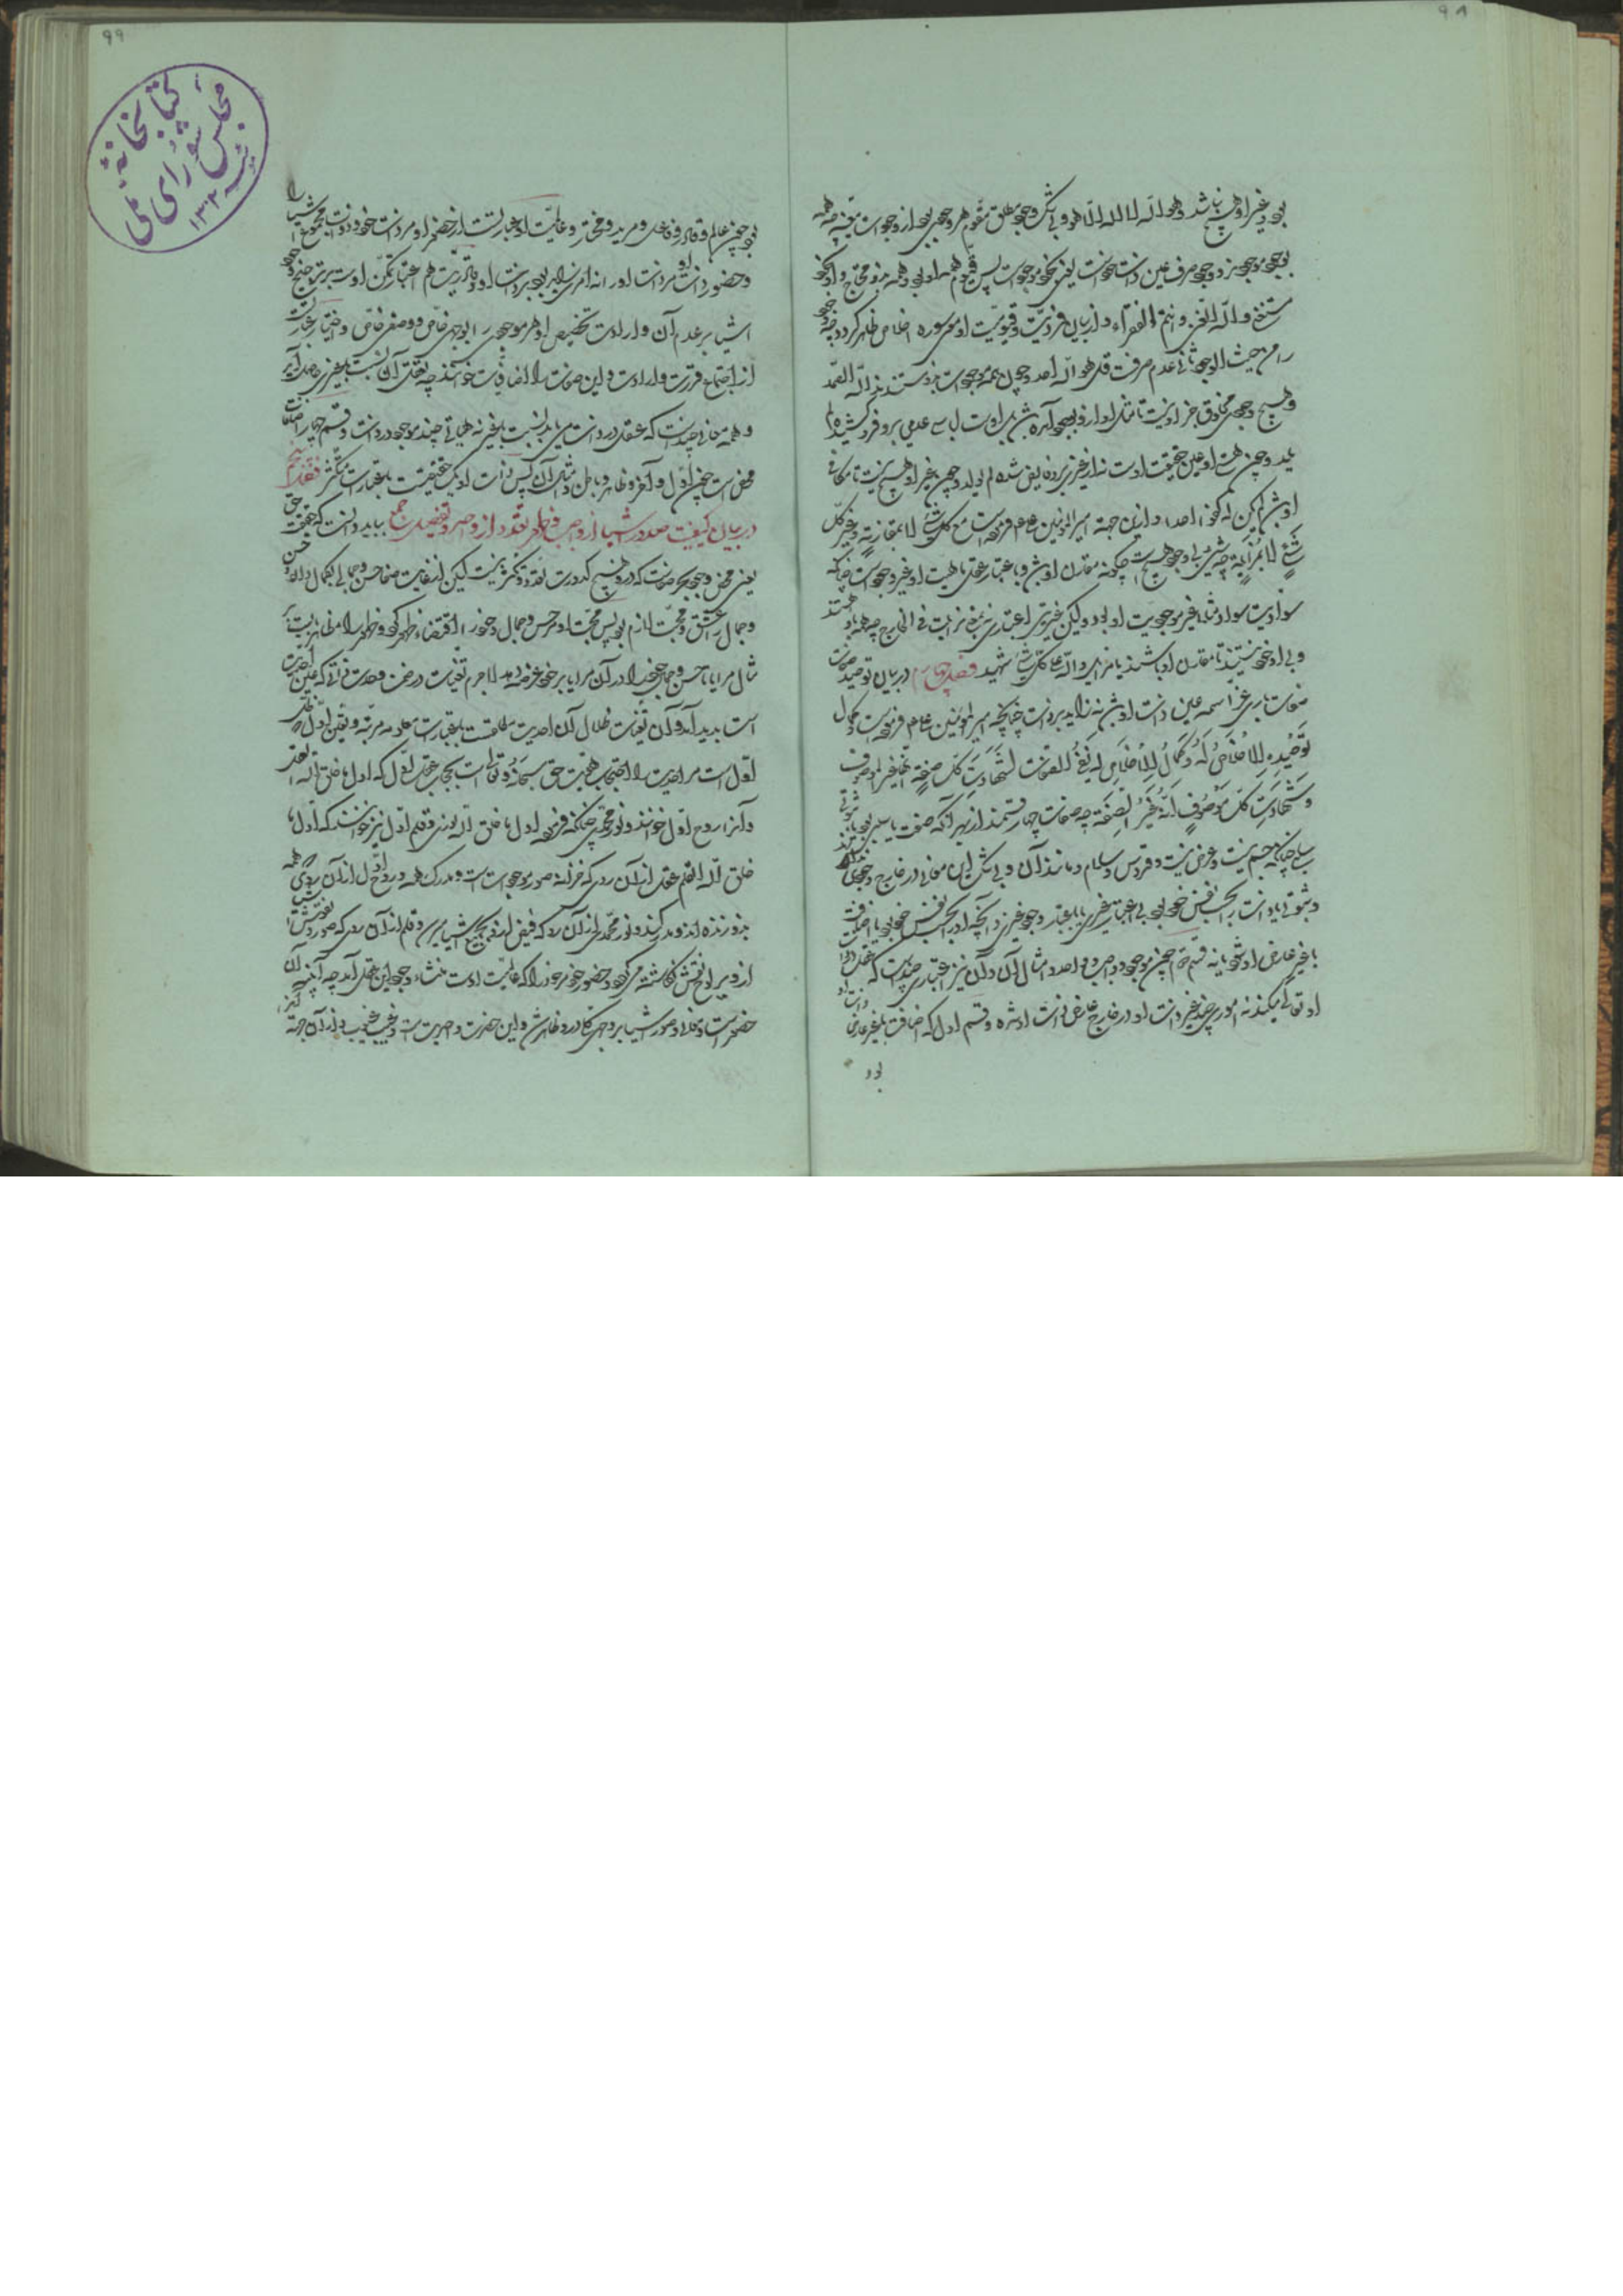 ۹۸
بود و غیر او هیچ نباشد و هو الله لا اله الا هو و بی شک وجود مطلق مقوم هر وجودی بود از وجودات متعینه چه همه
بوجود موجودند و وجود صرف عین ذات خود است یعنی بخود موجود است پس قیوم همه او بود و همه بدو محتاج و او از همه
مستغنی و الله الغنی و انتم الفقراء و از بیان فردیت و قیومیت او سوره اخلاص ظاهر گردد چه وجود
را من حیث الوجود ثانی عدم صرفست قل هو الله احد و چون همه موجودات بدو مستندند الله الصمد
و هیچ وجودی مخلوق جز او نیست تا مثل او از او بوجود آمده باشد بل اوست لباس عدمی برو فرو کشیده لم
یلد و چون هستی او عین حقیقت اوست نه از غیری برو فایض شده و لم یولد و چون غیر او هیچ نیست تا مکافی
او باشد و لم یکن له کفوا احد و ازین جهة امیر المؤمنین ع م فرموده است مع کل شئ لا بمقارنة و غیر کل
شئ لا بمزایلة چه شئ بی وجود هیچ است چگونه مقارن او باشد و باعتبار عقلی ماهیت او غیر وجود است چنانکه
سوادیت سواد مثلا غیر موجودیت او بود ولیکن غیریتی اعتباری نه بمعنی مزایلت فی الخارج چه همه باو هستند
و بی او خود نیستند تا مقارن او باشند یا مزایل و الله علی کل شئ شهید فصل چهارم در بیان توحید صفات
صفات باری عز اسمه عین ذات او باشد نه زاید بر ذات چنانچه امیر المؤمنین ع م فرموده است و کمال
توحیده الاخلاص له و کمال الاخلاص له نفی الصفات لشهادة کل صفة انها غیر الموصوف
و شهادة کل موصوف انه غیر الصفة چه صفات چهار قسمند از بهر آنکه صفت یا سلبی بود یا ثبوتی
سلبی چنانکه جسم نیست و عرض نیست و قدوس و سلام و مانند آن و بی شک این معانی در خارج وجودی ندارند
و ثبوتی یا ذات را بحسب نفس خود بود بی اعتبار غیری یا باعتبار وجود غیری و آنچه او را بحسب نفس خود بود یا اضافت
با غیر عارض او شود یا نه قسم دوم چون موجود و واجب و واحد و امثال آن و آن نیز اعتباری چند است که عقل ذات او
او تعالی میکند نه اموری چند غیر ذات او در خارج عارض ذات او شده و قسم اول که اضافت با غیر عارض
بود
۹۹
کتابخانه مجلس شورای ملی ۱۳۰۲
بود چون عالم و قادر و فاعل و مرید و مختار و عالمیت او عبارتست از حضور او مر ذات خود را و ذوات مجموع اشیا را
و حضور ذات او مر ذات او را نه امری زاید بود بر ذات او و قادریت هم اعتبار تمکن اوست بر ترجیح وجود
اشیا بر عدم آن و ارادت تخصیص او هر موجودی را بوجهی خاص و وصفی خاص و اختیار عبارت
از اجتماع قدرت و ارادت و این صفات را اضافیات خوانند چه تعقل آن نسبت با غیری حاصل آید
و همه معانی چند است که عقل در ذات می یابد بنسبت با غیر نه هیأتی چند موجود در ذات و قسم چهارم اضافات
محض است چون اول و آخر و ظاهر و باطن و امثال آن پس ذات او یک حقیقتست باعتبارات متکثر فصل پنجم
در بیان کیفیت صدور اشیا از واجب و ظهور تعدد از واحد و تفصیل جمع بباید دانست که حقیقت حق
یعنی محض وجود بحد صفاست که درو هیچ کدورت تعدد و تکثر نیست لیکن از غایت صفا حسن و جمالی بکمال دارد و حسن
و جمال را عشق و محبت لازم بود پس محبت او مر حسن و جمال خود را اقتضاء ظهور کرد و ظهور را مظاهر بایست
مثال مرایا تا حسن و جمال خود را در آن مرایا بر خود عرضه دهد لاجرم تعینات در ضمن وحدت ذاتی که عین احدیت
است پدید آمد و آن تعینات ظلال آن احدیت مطلقست باعتبارات عددی مرتبه و تعین اول ظل
اول است مر احدیت را و احتجاب حقیقت حق سبحانه و تعالی است بحجاب عقل اول که اول ما خلق الله العقل
و آنرا روح اول خوانند و نور محمدی چنانکه فرمود اول ما خلق الله نوری و قلم اول نیز خوانند که اول ما
خلق الله القلم عقل از آن روی که خزانه صور موجودات است و مدرک همه و روح اول از آن روی که همه
بدو زنده اند و مدرکند و نور محمدی از آن رو که فیض ازو بجمیع اشیا میرسد و قلم از آن روی که صور و نقوش اشیا
ازو بر الواح نقش نگاشته میگردد و حضور خود مر خود را که عالمیت اوست منشاء وجود این عقل آمد چه آینه آن
حضرتست و معانی و صور اشیا بر وجهی کلی درو ظاهر شد و این حضرت واحدیت است و غیب غیوب و از آن جهة